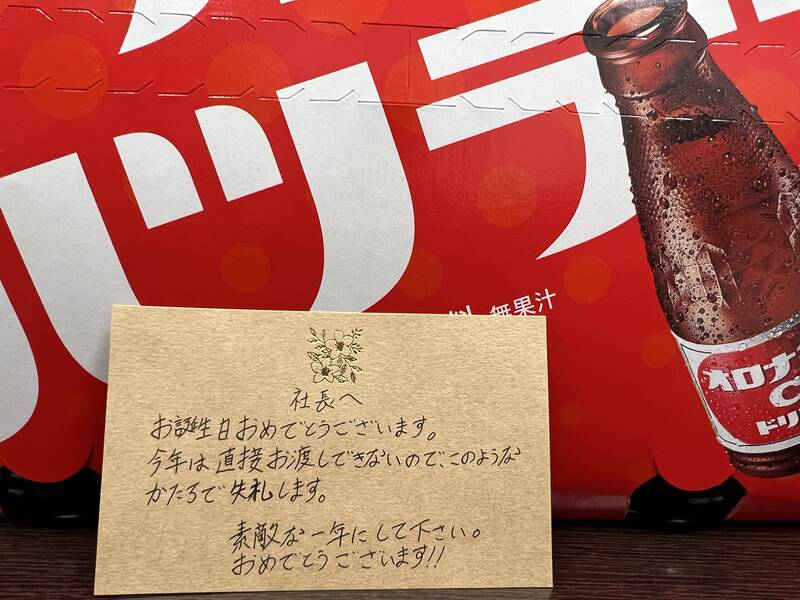 ッデ
無果汁
オロナ
C
ドリ
社長へ
お誕生日おめでとうございます。
今年は直接お渡しできないので、このような
かたちで失礼します。
素敵な一年にして下さい。
おめでとうございます!!